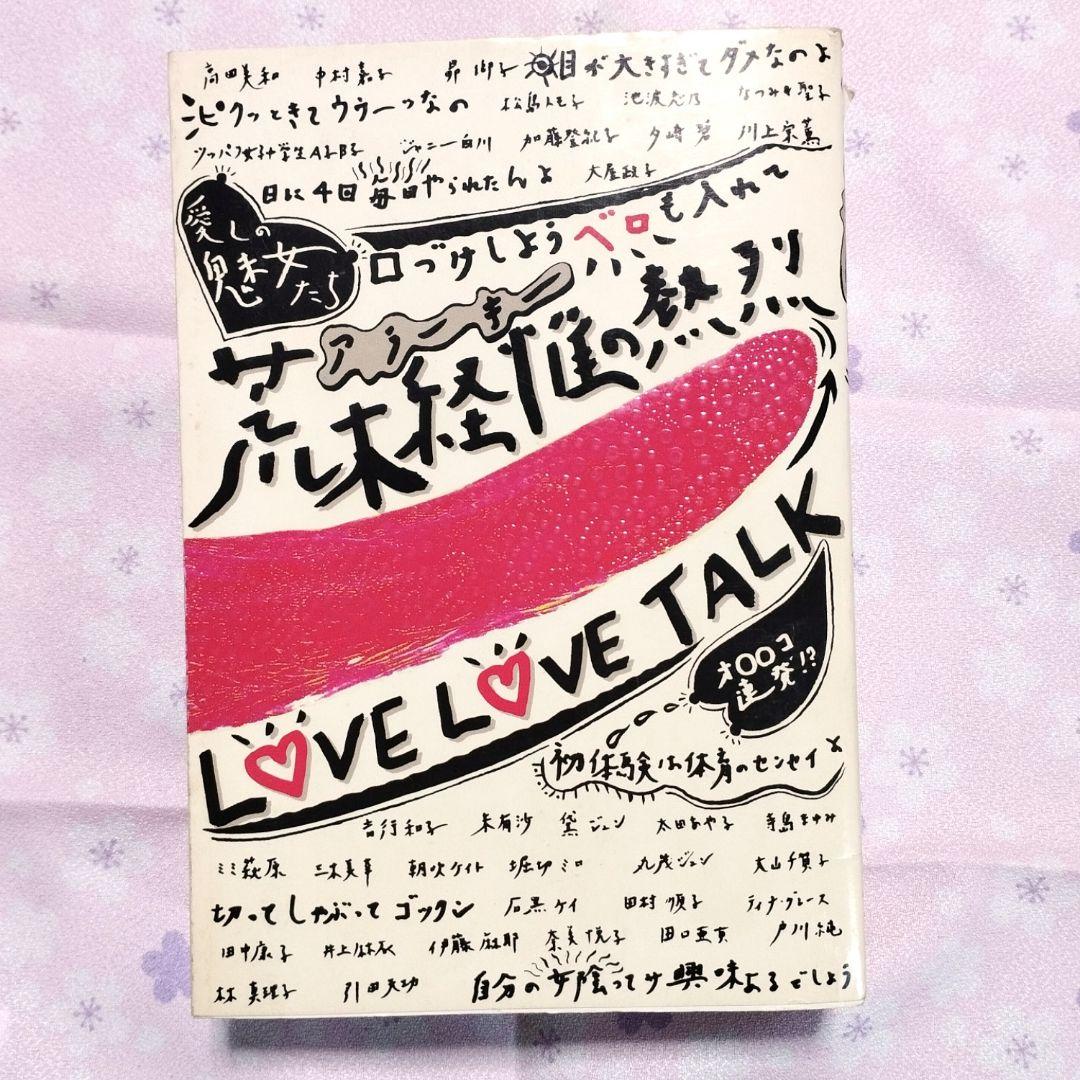 高田美和 中村嘉子 昴御子 目が大きすぎてダメなのよ
ピクッときてウラーつなの 松島トモ子 池波志乃 なつみ聖子
ツッパリ女子中学生A子B子 ジャニー白川 加藤登紀子 夕崎碧 川上宗薫
一日に4回毎日やられたんよ 大屋政子
愛しの魅女たち
口づけしようベロも入れて
アラーキー
荒木経惟の熱烈
LOVE LOVE TALK
オ〇〇コ連発!?
初体験は体育のセンセイよ
吉行和子 朱有沙 黛ジュン 太田あや子 寺島まゆみ
ミミ萩原 三木美草 朝吹ケイト 堀切ミロ 丸茂ジュン 大山千賀子
切ってしゃぶってゴックン 石黒ケイ 田村順子 ティナ・グレース
田中康子 井上麻衣 伊藤麻耶 奈美悦子 田口亜貢 戸川純
林真理子 引田天功 自分の女陰ってサ興味あるでしょう